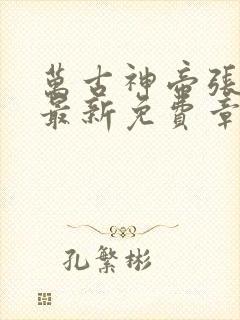 萬古神帝張
最新免費章
孔繁彬